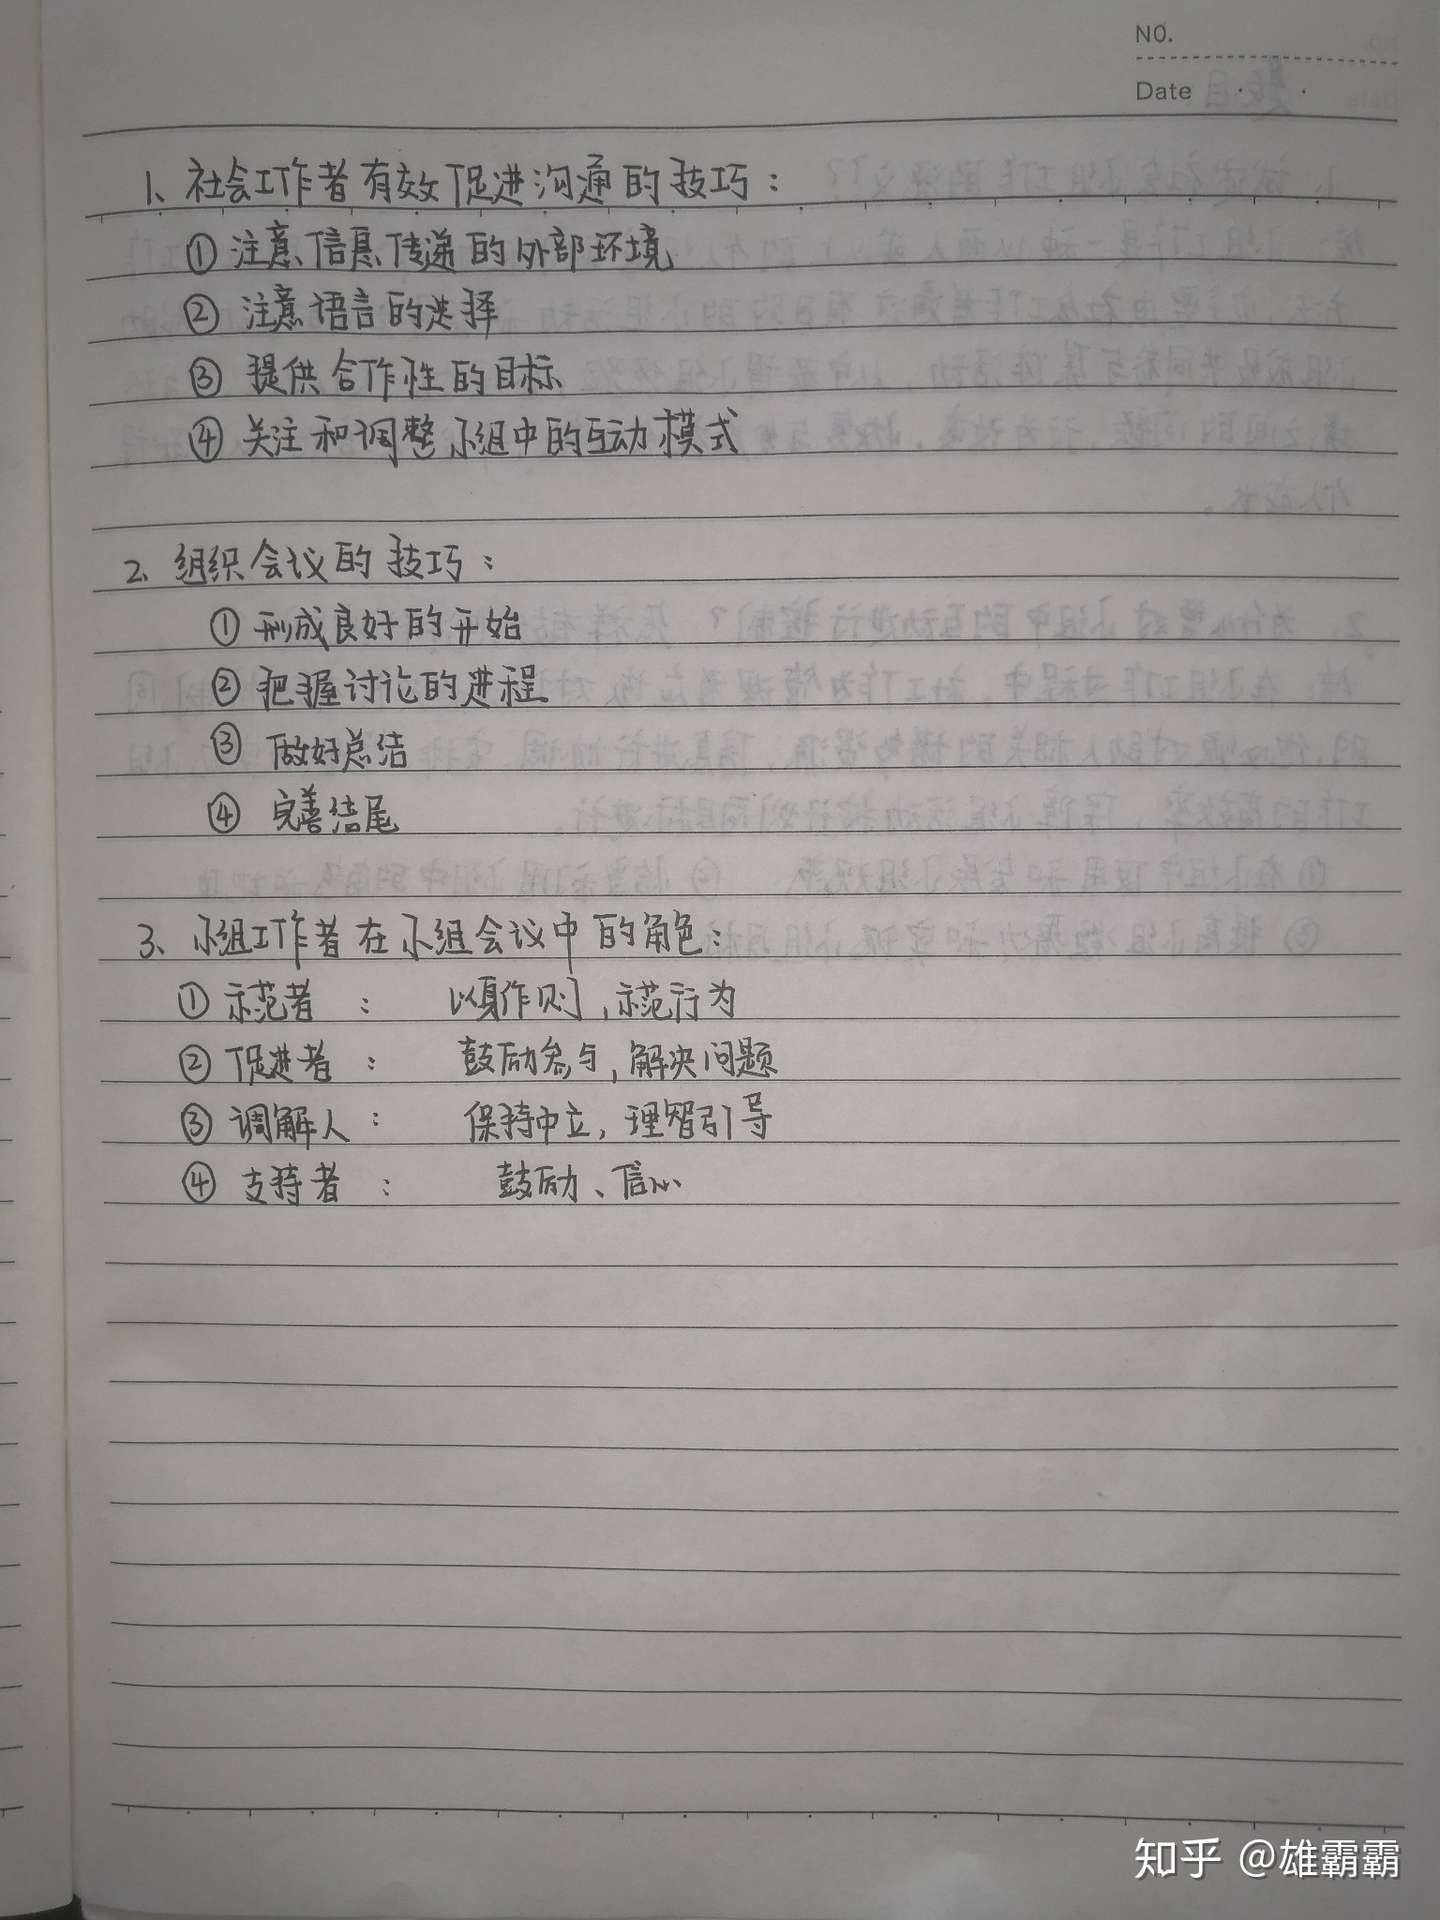 NO.
Date
1、社会工作者有效促进沟通的技巧：
①注意信息传递的外部环境
②注意语言的选择
③提供合作性的目标
④关注和调整小组中的互动模式
2、组织会议的技巧：
①形成良好的开始
②把握讨论的进程
③做好总结
④完善结尾
3、小组工作者在小组会议中的角色：
①示范者：以身作则，示范行为
②促进者：鼓励参与，解决问题
③调解人：保持中立，理智引导
④支持者：鼓励、信心
知乎 @雄霸霸